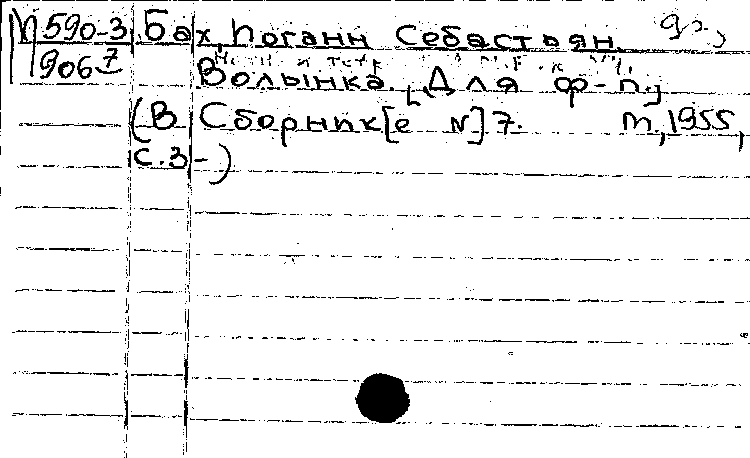 М 590-3 Бах, Иоганн Себастьян.
906 7 Волынка. [Для ф-п.]
(В Сборник[е №] 7. М., 1955,
с. 3-)